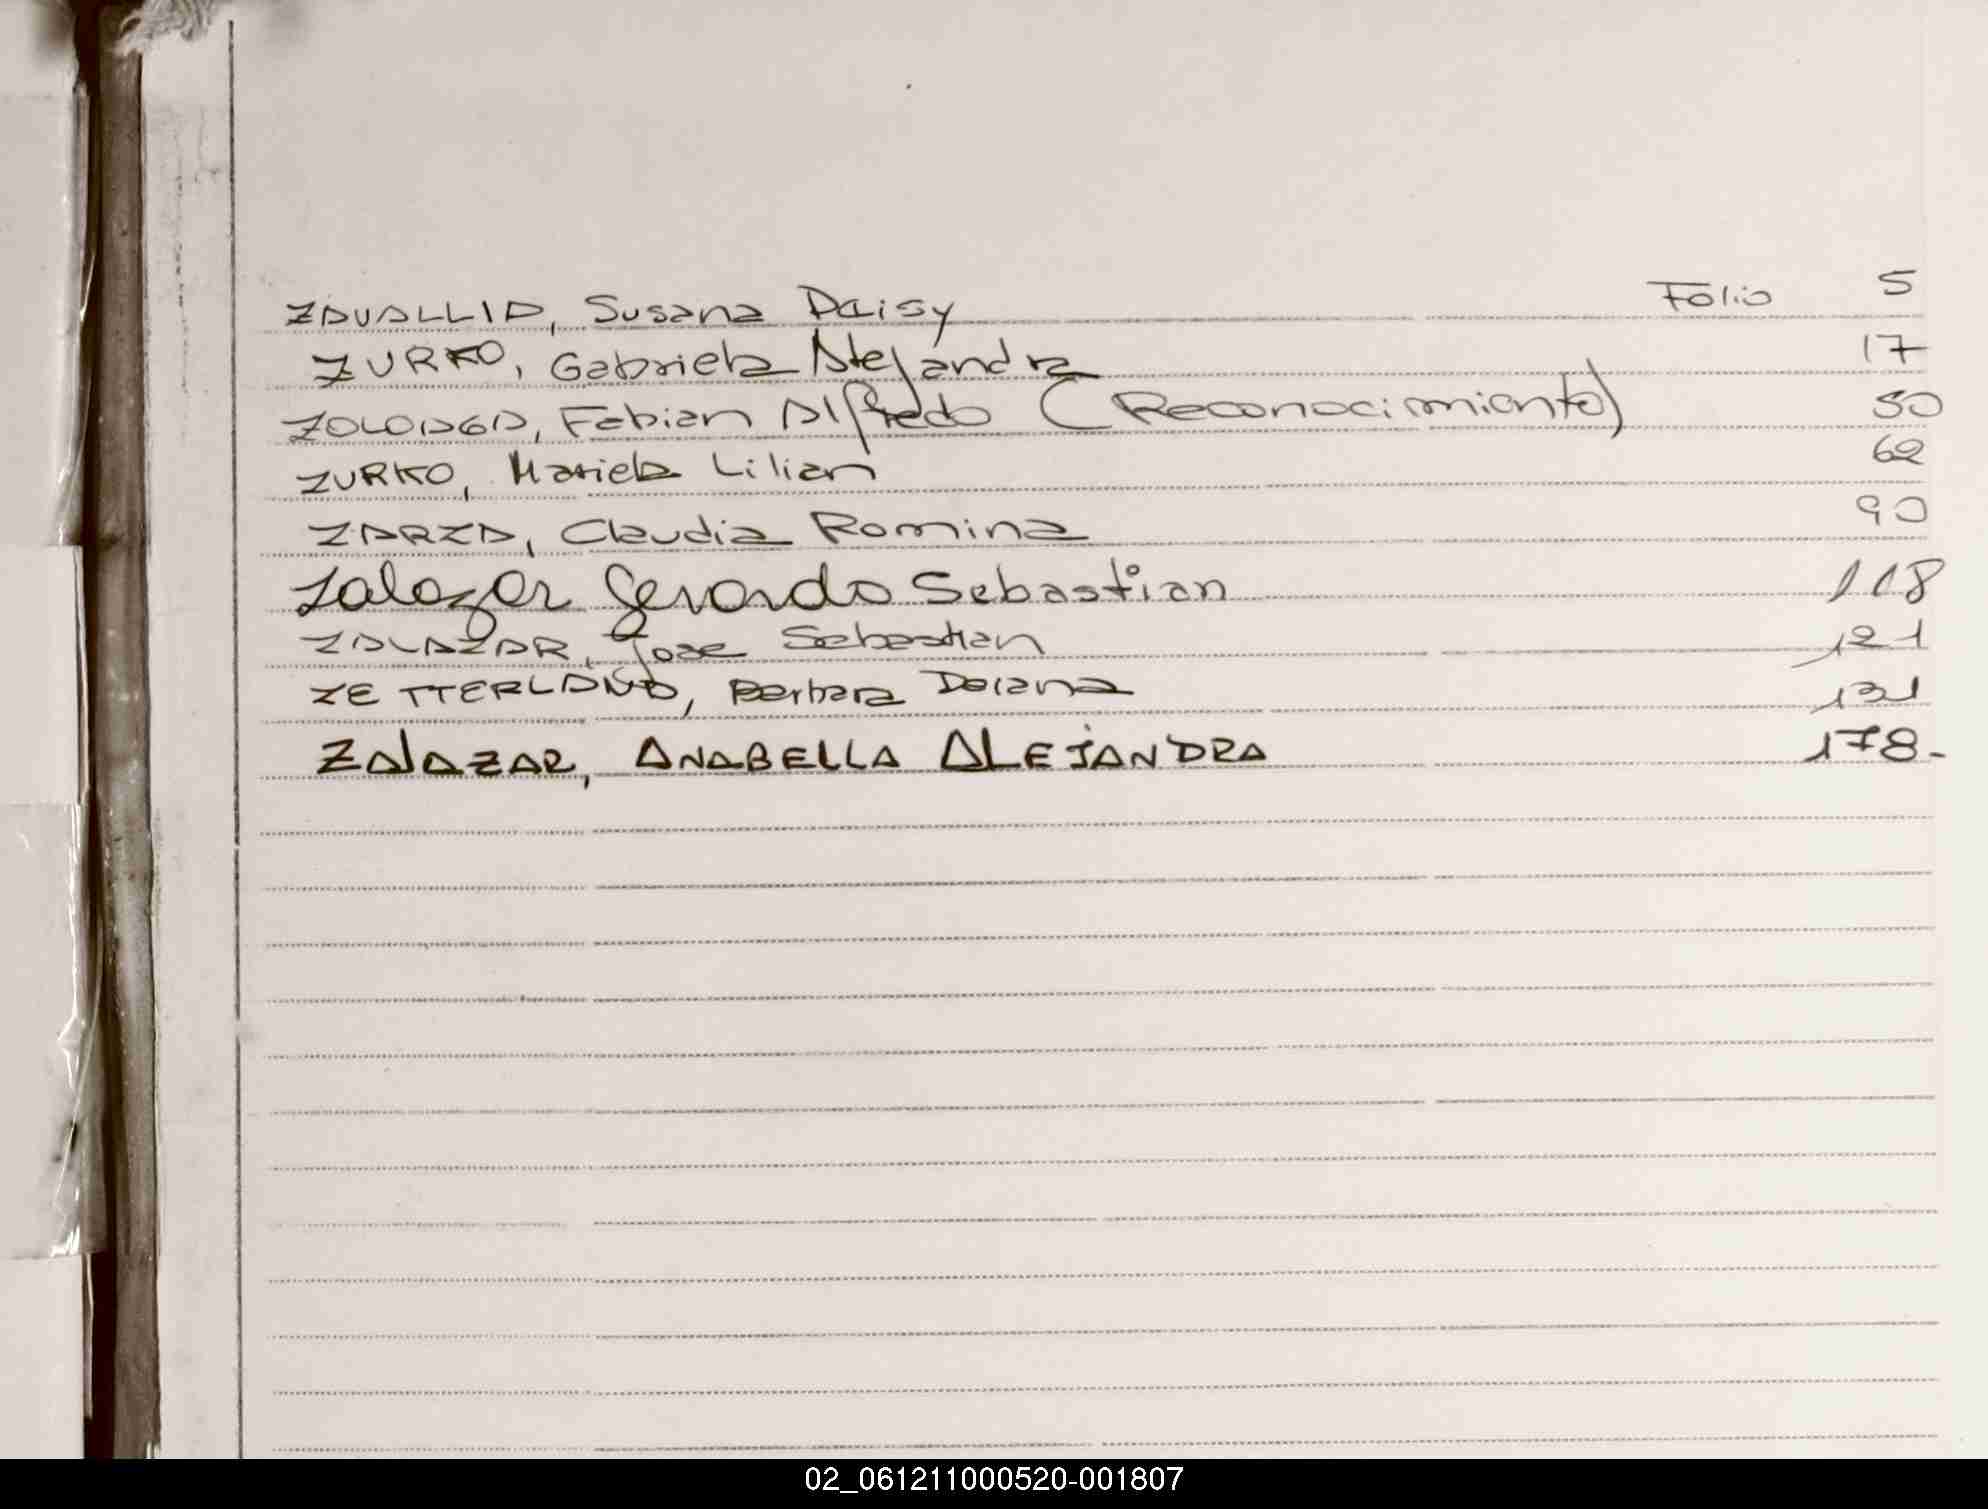 ZAVALLIA, Susana Daisy Folio 5
ZURKO, Gabriela Alejandra 17
ZOLOAGA, Fabian Alfredo (Reconocimiento) 50
ZURKO, Mariela Lilian 62
ZARZA, Claudia Romina 90
Zalazar Gerardo Sebastian 118
ZALAZAR, Jose Sebastian 121
ZETTERLAND, Barbara Daiana 131
ZALAZAR, ANABELLA ALEJANDRA 178-
02_061211000520-001807